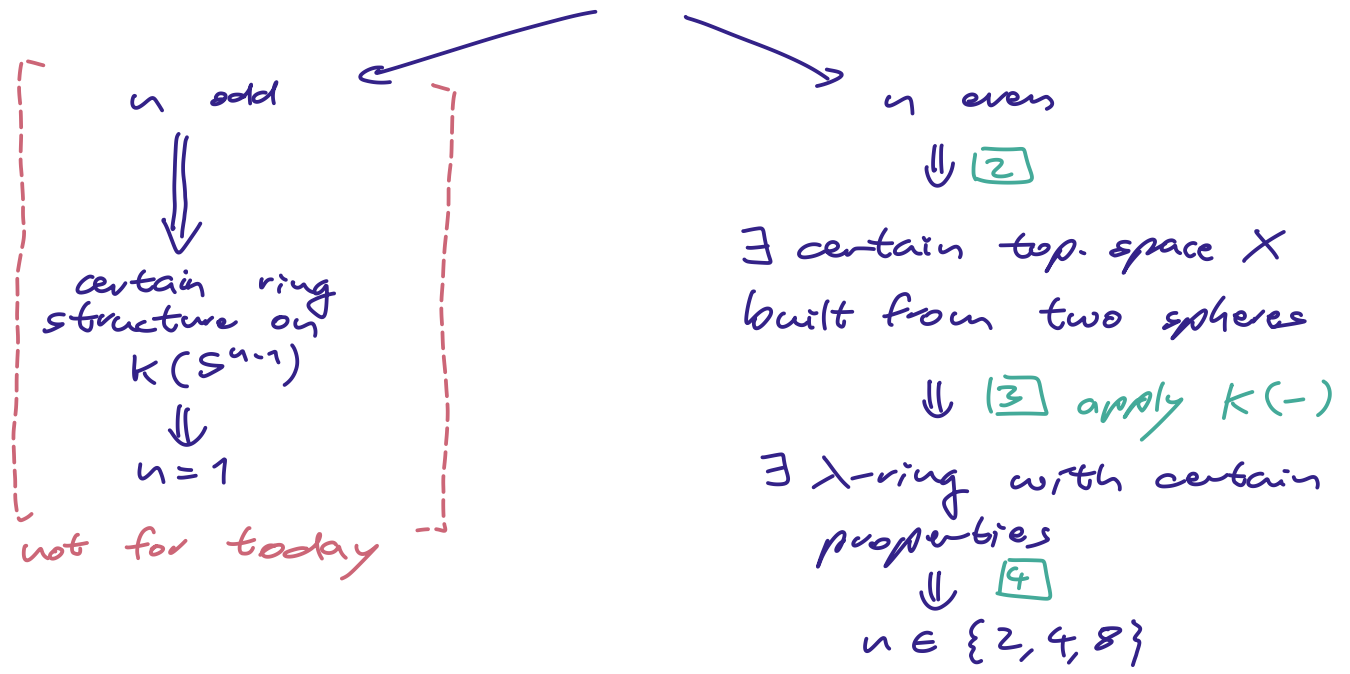 n odd
⇓
certain ring
structure on
K(Sⁿ⁻¹)
⇓
n = 1
not for today
n even
⇓ 2
∃ certain top. space X
built from two spheres
⇓ 3 apply K(-)
∃ λ-ring with certain
properties
⇓ 4
n ∈ {2, 4, 8}